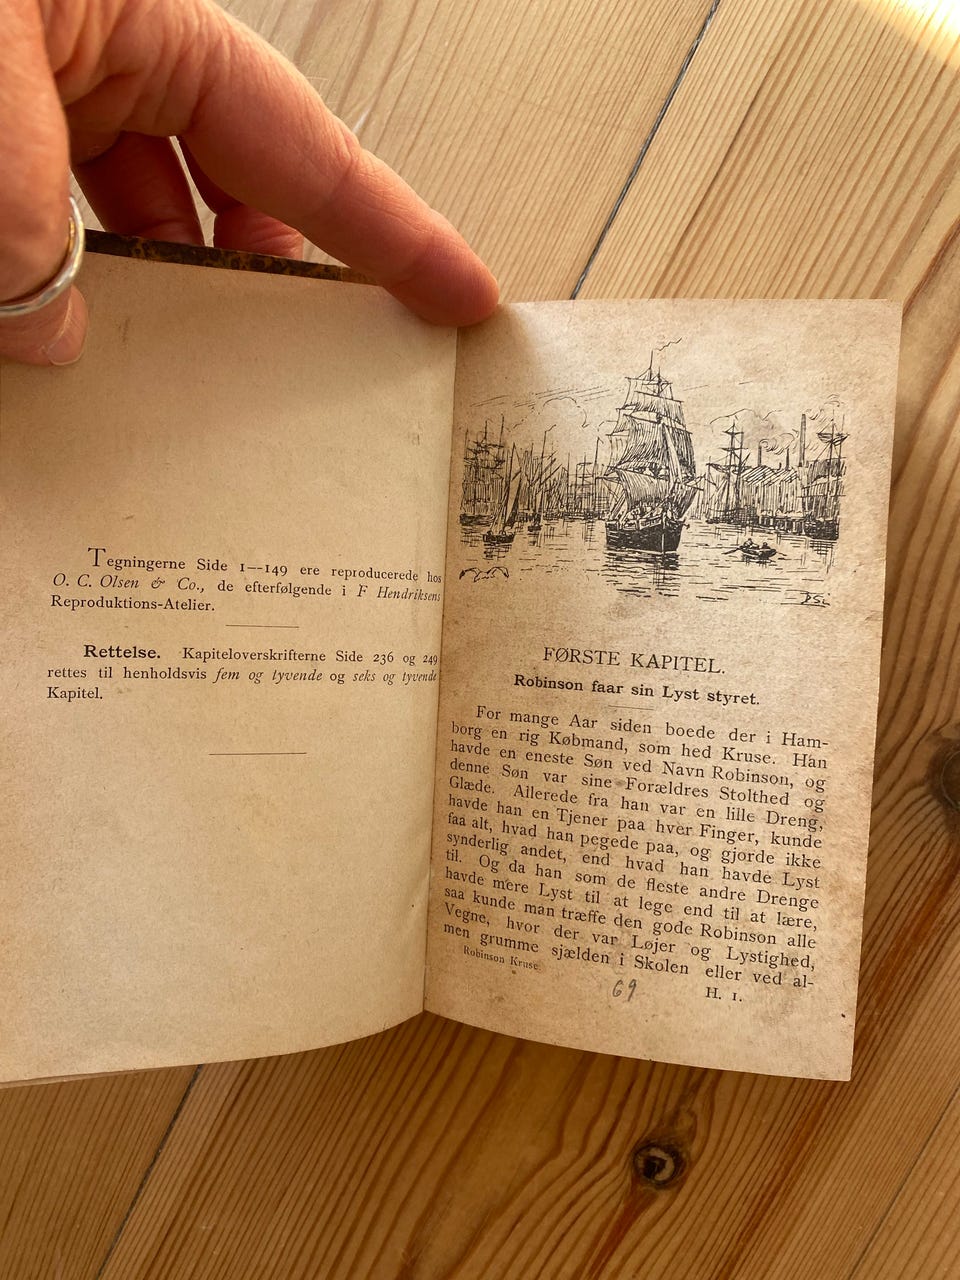 Tegningerne Side 1—149 ere reproducerede hos
O. C. Olsen & Co., de efterfølgende i F Hendriksens
Reproduktions-Atelier.
Rettelse. Kapiteloverskrifterne Side 236 og 249
rettes til henholdsvis fem og tyvende og seks og tyvende
Kapitel.
DSi
FØRSTE KAPITEL.
Robinson faar sin Lyst styret.
For mange Aar siden boede der i Ham-
borg en rig Købmand, som hed Kruse. Han
havde en eneste Søn ved Navn Robinson, og
denne Søn var sine Forældres Stolthed og
Glæde. Allerede fra han var en lille Dreng,
havde han en Tjener paa hver Finger, kunde
faa alt, hvad han pegede paa, og gjorde ikke
synderlig andet, end hvad han havde Lyst
til. Og da han som de fleste andre Drenge
havde mere Lyst til at lege end til at lære,
saa kunde man træffe den gode Robinson alle
Vegne, hvor der var Løjer og Lystighed,
men grumme sjælden i Skolen eller ved al-
Robinson Kruse.
H. 1.
69